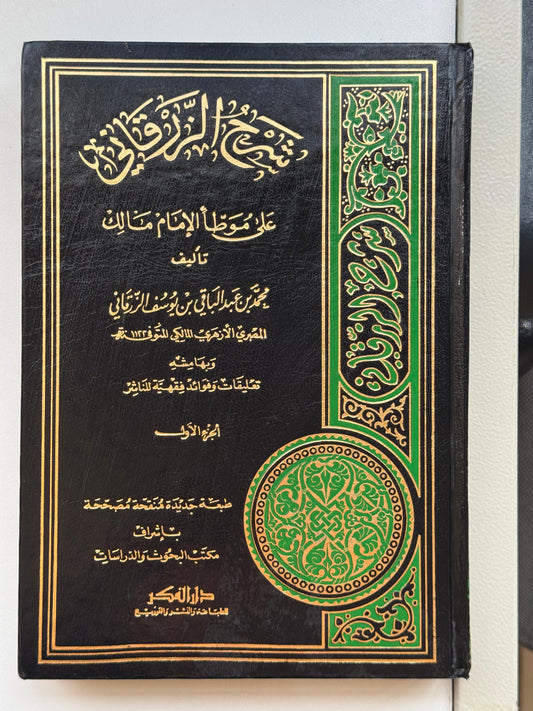 شَرْحُ الزَّرْقَانِي
عَلى مُوَطَّأ الإِمَام مَالِك
تأليف
محمّد بن عبد الباقي بن يُوسُف الزّرقاني
المصري الأزهري المالكي المتوفى ١١٢٢ هـ
وبهامشه
تعليقات وفوائد فقهية للناشر
الجزء الأول
شرح الزرقاني
طبعة جديدة منقحة مصححة
بإشراف
مكتب البحوث والدراسات
دار الفكر
للطباعة والنشر والتوزيع